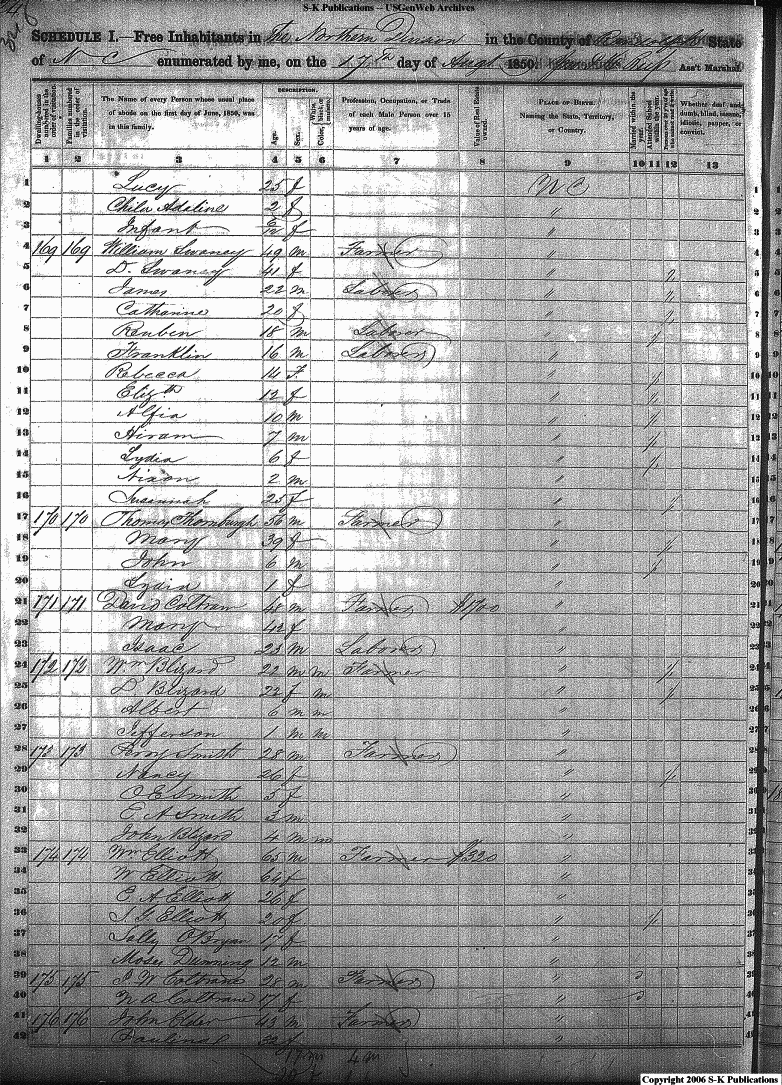 S-K Publications -- USGenWeb Archives
SCHEDULE I.—Free Inhabitants in The Northern Division in the County of Randolph State
of N C enumerated by me, on the 17th day of Augt 1850. Ass't Marshal.
Dwelling-houses numbered in the order of visitation.
Families numbered in the order of visitation.
The Name of every Person whose usual place of abode on the first day of June, 1850, was in this family.
DESCRIPTION.
Age.
Sex.
Color,
Profession, Occupation, or Trade of each Male Person over 15 years of age.
Value of Real Estate owned.
PLACE OF BIRTH. Naming the State, Territory, or Country.
Married within the year.
Attended School within the year.
Whether deaf and dumb, blind, insane, idiotic, pauper, or convict.
1 2 3 4 5 6 7 8 9 10 11 12 13
1 Lucy 25 f N C 1
2 Child Adaline 2 f " 2
3 Infant f " 3
4 169 169 William Swaney 49 m Farmer " 4
5 D. Swaney 41 f " / 5
6 James 22 m Laborer " / 6
7 Catharine 20 f " / 7
8 Reuben 18 m Laborer " / 8
9 Franklin 16 m Laborer " / 9
10 Rebecca 14 F " / 10
11 Elizth 12 f " / 11
12 Alfia 10 m " / 12
13 Hiram 7 m " / 13
14 Lydia 6 f " / 14
15 Nixon 2 m " 15
16 Susannah 25 f " / 16
17 170 170 Thomas Thornburgh 56 m Farmer " 17
18 Mary 39 f " / 18
19 John 6 m " / 19
20 Lydia 1 f " 20
21 171 171 David Coltram 48 m Farmer $1700 " 21
22 Mary 42 f " 22
23 Isaac 23 m Laborer " 23
24 172 172 Wm Blizard 22 m m Farmer " / 24
25 D Blizard 22 f m " / 25
26 Albert 6 m m " 26
27 Jefferson 1 m m " 27
28 173 173 Smith 28 m Farmer " 28
29 Nancy 26 f " / 29
30 O E Smith 5 f " 30
31 E A Smith 3 m " 31
32 John Blizard 4 m m " 32
33 174 174 Wm Elliott 65 m Farmer $320 " 33
34 W Elliott 64 f " 34
35 E A Elliott 26 f " 35
36 Elliott 20 f " / 36
37 Sally O'Bryan 17 f " 37
38 Moses Dunning 12 m " 38
39 175 175 J W Coltrane 28 m Farmer " 39
40 N A Coltrane 17 f " 40
41 176 176 John Elder 43 m Farmer " 41
42 f " 42
Copyright 2006 S-K Publications